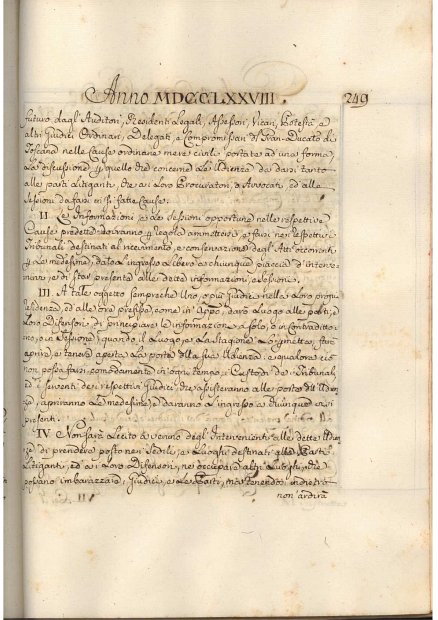 Anno MDCCLXXVIII. 249
futuro, dagl' Auditori, Residenti Legali, Assessori, Vicari, Potestà e
altri Giudici Ordinari, Delegati, e Compromissari del Gran-Ducato di
Toscana nelle Cause ordinarie mere civili portate ad una forma,
La discussione, e quello che concerne Le Udienze da darsi tanto
alle parti Litiganti, che ai Loro Procuratori, o Avvocati, ed alle
Sessioni da farsi en si fatte Cause.
II. Le Informazioni, e Le Sessioni opportune nelle respettive
Cause predette dovranno p regola ammettersi, e farsi nei respettivi
Tribunali destinati al ricevimento, e conservazione degl' Atti occorrenti
p Le medesime, dato L'ingresso Libero a chiunque piaccia d'interve-
nirvi, e di star presente alle dette informazioni, e sessioni.
III. A tale oggetto sempreche Uno, o più Giudici nella Loro propria
residenza, ed alle ore prefisse, come in app.o, daranno Luogo alle parti, e
Loro Difensori di principiare le informazioni a solo, o in Contraditto-
rio, o in Sessione, quando il Luogo, e La stagione Lo permetta, farà
aprire, e tenere aperta La porta della sua Udienza, e qualora ciò
non possa farsi comodamente in ogni tempo, i Custodi dei Tribunali,
ed i serventi dei respettivi Giudici che assisteranno alle porte dell' Udien-
za, apriranno Le medesime, e daranno L'ingresso a chiunque si
presenti.
IV. Non sarà Lecito a veruno degl' Intervenienti alle dette Udien-
ze di prendere posto nei Sedili, e Luoghi destinati alle Parti
Litiganti, ed ai Loro Difensori, nè occupare altri Luoghi, che
possano imbarazzare i Giudici, e Le Parti, ma tenendosi indietro
non ardirà